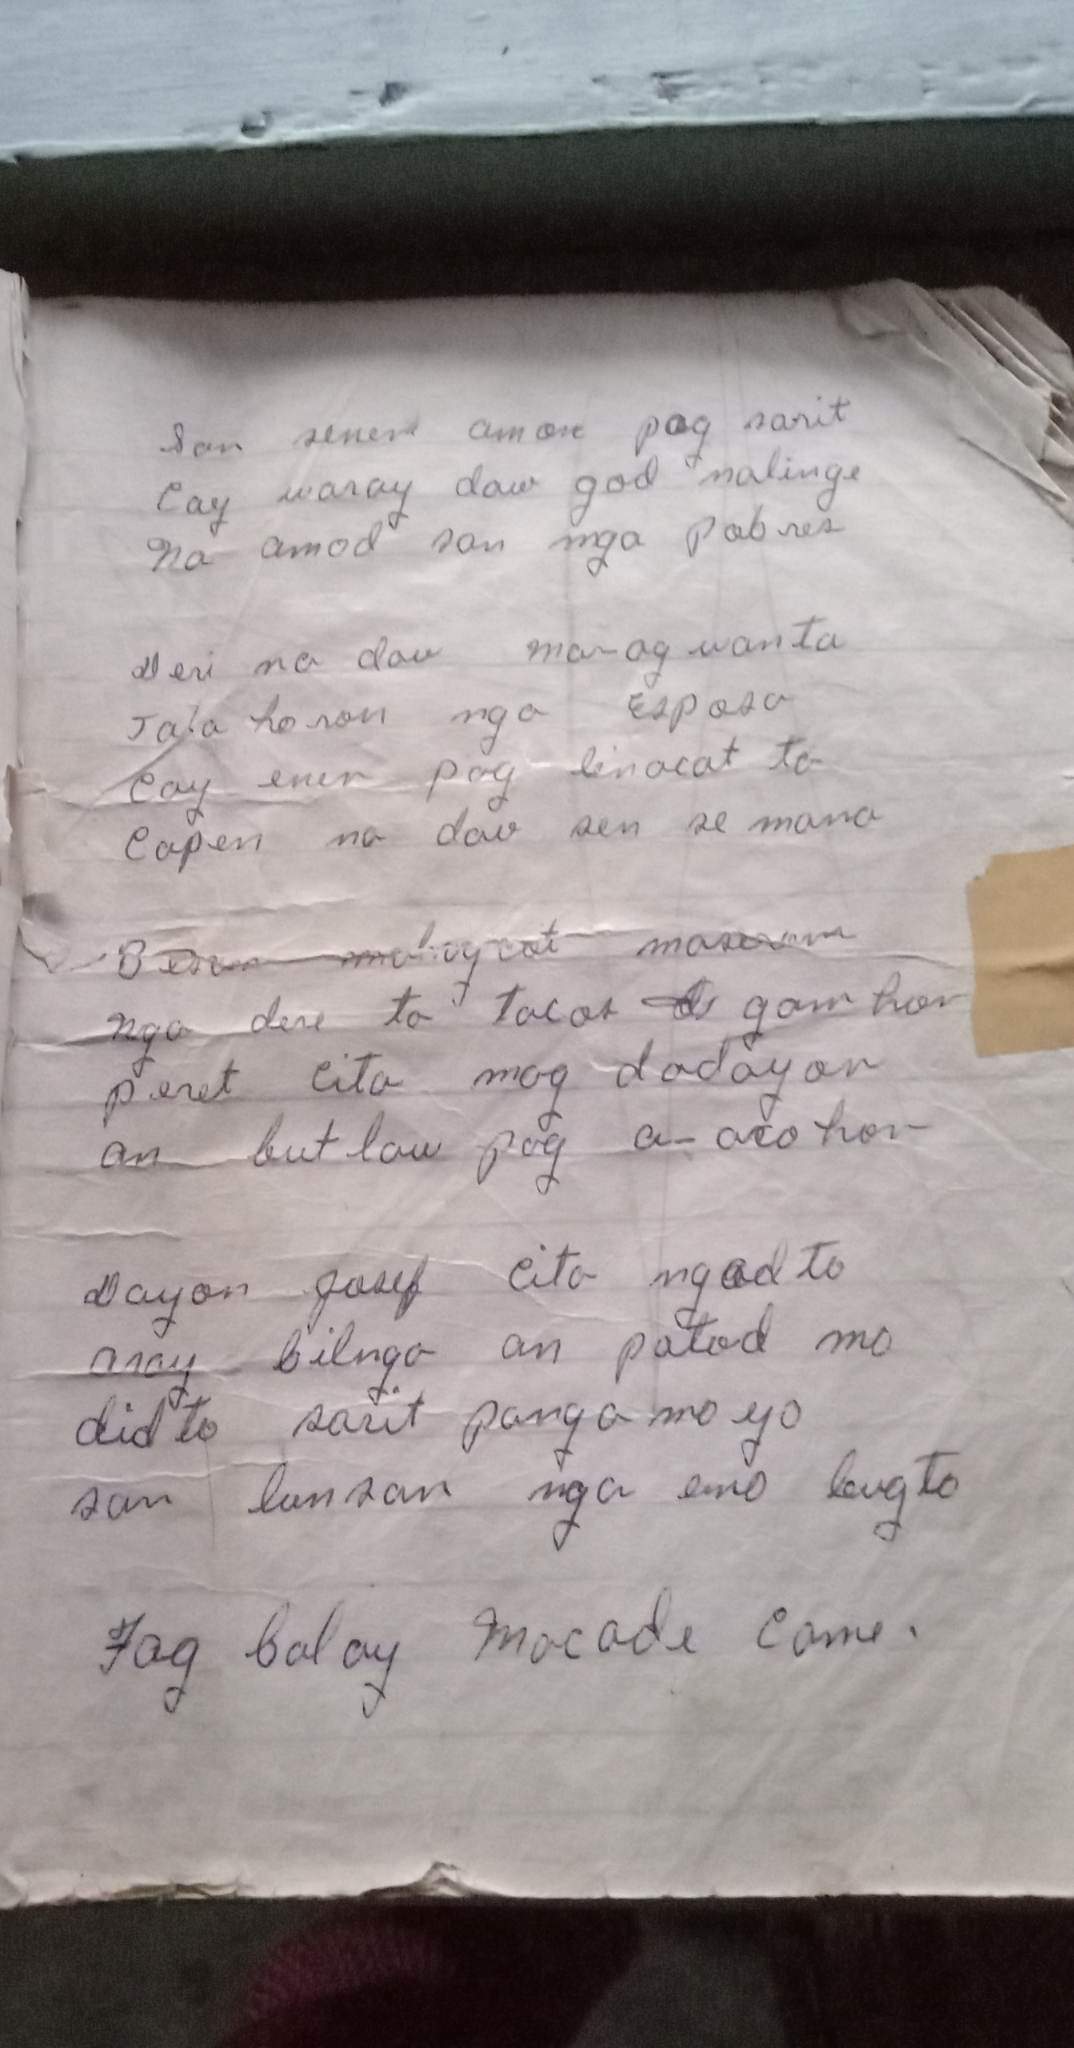 San senen amon pag sarit
Cay waray daw god nalinge
Na amod san nga Pobres
Deri na daw marag wanta
Tala horon nga Esposa
Cay enen pag linacat ta
Capen na daw sen se mana
maserom
Nga dere ta tacos gam hon
peret Cita mag dadayon
an butlaw pag a-aco hon
Dayon Josef Cita ngadto
aray bilnga an patod mo
didto sarit panga mo yo
san lunsan nga emo bugto
Tag balay Macade Came.